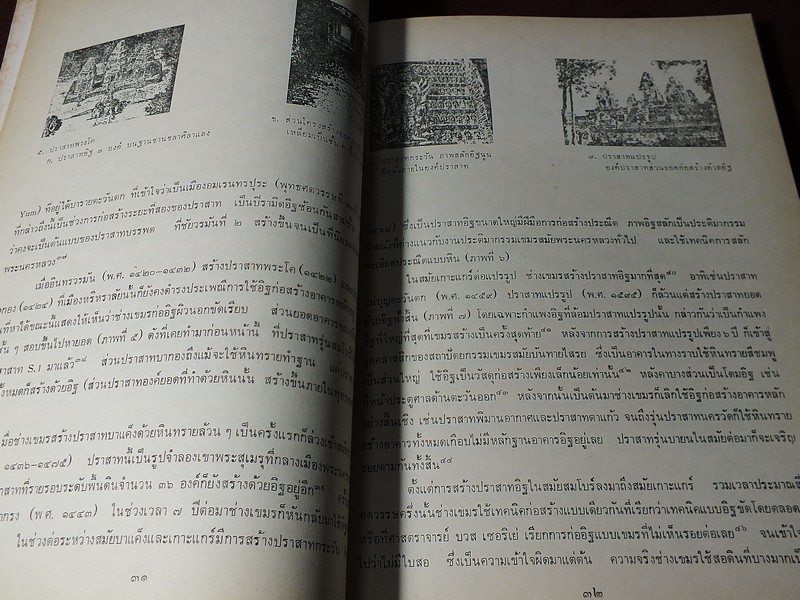 ๕. ปราสาทพวงโค
ก. ปราสาทอิฐ ๓ องค์ บนฐานชานชลาศิลาแลง
ข. ส่วนโครงสร้าง
เหลื่อมเป็นชั้น
Yum) ที่อยู่ใต้บารายตะวันตก ที่เข้าใจว่าเป็นเมืองอมเรนทรปุระ (พุทธศตวรรษที่
ที่กล่าวถึงนี้เป็นช่วงการก่อสร้างระยะที่สองของปราสาท เป็นปิรามิดอิฐซ้อนกันสามชั้น
ว่าคงจะเป็นต้นแบบของปราสาทบรรพต ที่ชัยวรมันที่ ๒ สร้างขึ้นจนเป็นที่นิยม
พระนครหลวง๓๗
เมื่ออินทรวรมัน (พ.ศ. ๑๔๒๐-๑๔๓๒) สร้างปราสาทพระโค (๑๔๒๒)
กอง (๑๔๒๔) ที่เมืองหริหราลัยนั้นก็ยังคงดำรงประเพณีการใช้อิฐก่อสร้างอาคาร
ที่หาได้ขณะนั้นแสดงให้เห็นว่าช่างเขมรก่ออิฐผิวนอกขัดเรียบ ส่วนยอดอาคาร
ชั้น ๆ สอบขึ้นไปหายอด (ภาพที่ ๕) ดังที่เคยทำมาก่อนหน้านี้ ที่ปราสาทรุ่น
าสาท S.1 มาแล้ว๓๘ ส่วนปราสาทบากองถึงแม้จะใช้หินทรายทำฐาน
ั้งหมดก็สร้างด้วยอิฐ (ส่วนปราสาทองค์ยอดที่ทำด้วยหินนั้น สร้างขึ้นภายใน
มื่อช่างเขมรสร้างปราสาทบาแค็งด้วยหินทรายล้วน ๆ เป็นครั้งแรกก็ล่วงเข้า
๑๔๓๖-๑๔๗๕) ปราสาทนี้เป็นรูปจำลองเขาพระสุเมรุที่กลางเมือง
าสาทที่รายรอบระดับพื้นดินจำนวน ๓๖ องค์ก็ยังสร้างด้วยอิฐอยู่อีก๓๙
ากรง (พ.ศ. ๑๔๔๓) ในช่วงเวลา ๗ ปีต่อมาช่างเขมรก็หันกลับมาใช้
ในช่วงต่อระหว่างสมัยบาแค็งและเกาะแกร์มีการสร้างปราสาทกระวัน
๓๑
ปราสาทกระวัน ภาพสลักอิฐนูน
ที่ผนังภายในองค์ปราสาท
๗. ปราสาทแปรรูป
องค์ปราสาทส่วนยอดก่อสร้างด้วยอิฐ
ซึ่งเป็นปราสาทอิฐขนาดใหญ่มีฝีมือการก่อสร้างประณีต ภาพอิฐสลักเป็นประติมากรรม
แนวกับงานประติมากรรมเขมรสมัยพระนครหลวงทั่วไป และใช้เทคนิคการสลัก
ประณีตแบบหิน (ภาพที่ ๖)
ในสมัยเกาะแกร์ต่อแปรรูป ช่างเขมรสร้างปราสาทอิฐมากที่สุด๔๐ อาทิเช่นปราสาท
แม่บุญตะวันตก (พ.ศ. ๑๔๕๙) ปราสาทแปรรูป (พ.ศ. ๑๕๐๔) ก็ล้วนแต่สร้างปราสาทยอด
ด้วยอิฐทั้งสิ้น (ภาพที่ ๗) โดยเฉพาะกำแพงอิฐที่ล้อมปราสาทแปรรูปนั้น กล่าวกันว่าเป็นกำแพง
อิฐที่ใหญ่ที่สุดที่เขมรสร้างเป็นครั้งสุดท้าย๔๑ หลังจากการสร้างปราสาทแปรรูปเพียง ๖ ปี ก็เข้าสู่
ยุคคลาสสิกของสถาปัตยกรรมเขมรสมัยบันทายไสรย ซึ่งเป็นอาคารในทางราบใช้หินทรายสีชมพู
เป็นส่วนใหญ่ ใช้อิฐเป็นวัสดุก่อสร้างเพียงเล็กน้อยเท่านั้น๔๒ หลังคาบางส่วนเป็นโดมอิฐ เช่น
หน้าประตูศาลด้านตะวันออก๔๓ หลังจากนั้นเป็นต้นมาช่างเขมรก็เลิกใช้อิฐก่อสร้างอาคารหลัก
อย่างสิ้นเชิง เช่นปราสาทพิมานอากาศและปราสาทตาแก้ว จนถึงรุ่นปราสาทนครวัดก็ใช้หินทราย
สร้างอาคารทั้งหมดเกือบไม่มีหลักฐานอาคารอิฐอยู่เลย ปราสาทรุ่นบายนในสมัยต่อมาก็จะเจริญ
รอยตามกันทั้งสิ้น๔๔
ตั้งแต่การสร้างปราสาทอิฐในสมัยสมโบร์ลงมาถึงสมัยเกาะแกร์ รวมเวลาประมาณสี่
ศตวรรษครึ่งนั้นช่างเขมรใช้เทคนิคก่อสร้างแบบเดียวกันที่เรียกว่าเทคนิคแบบอิฐขัดโดยตลอด
หรือที่ศาสตราจารย์ บวส เซอร์ริเย่ เรียกการก่ออิฐแบบเขมรที่ไม่เห็นรอยต่อเลย๔๖ จนเข้าใจ
ไปว่าไม่มีใบสอ ซึ่งเป็นความเข้าใจผิดมาแต่ต้น ความจริงช่างเขมรใช้สอดินที่บางมากเป็น
๓๒